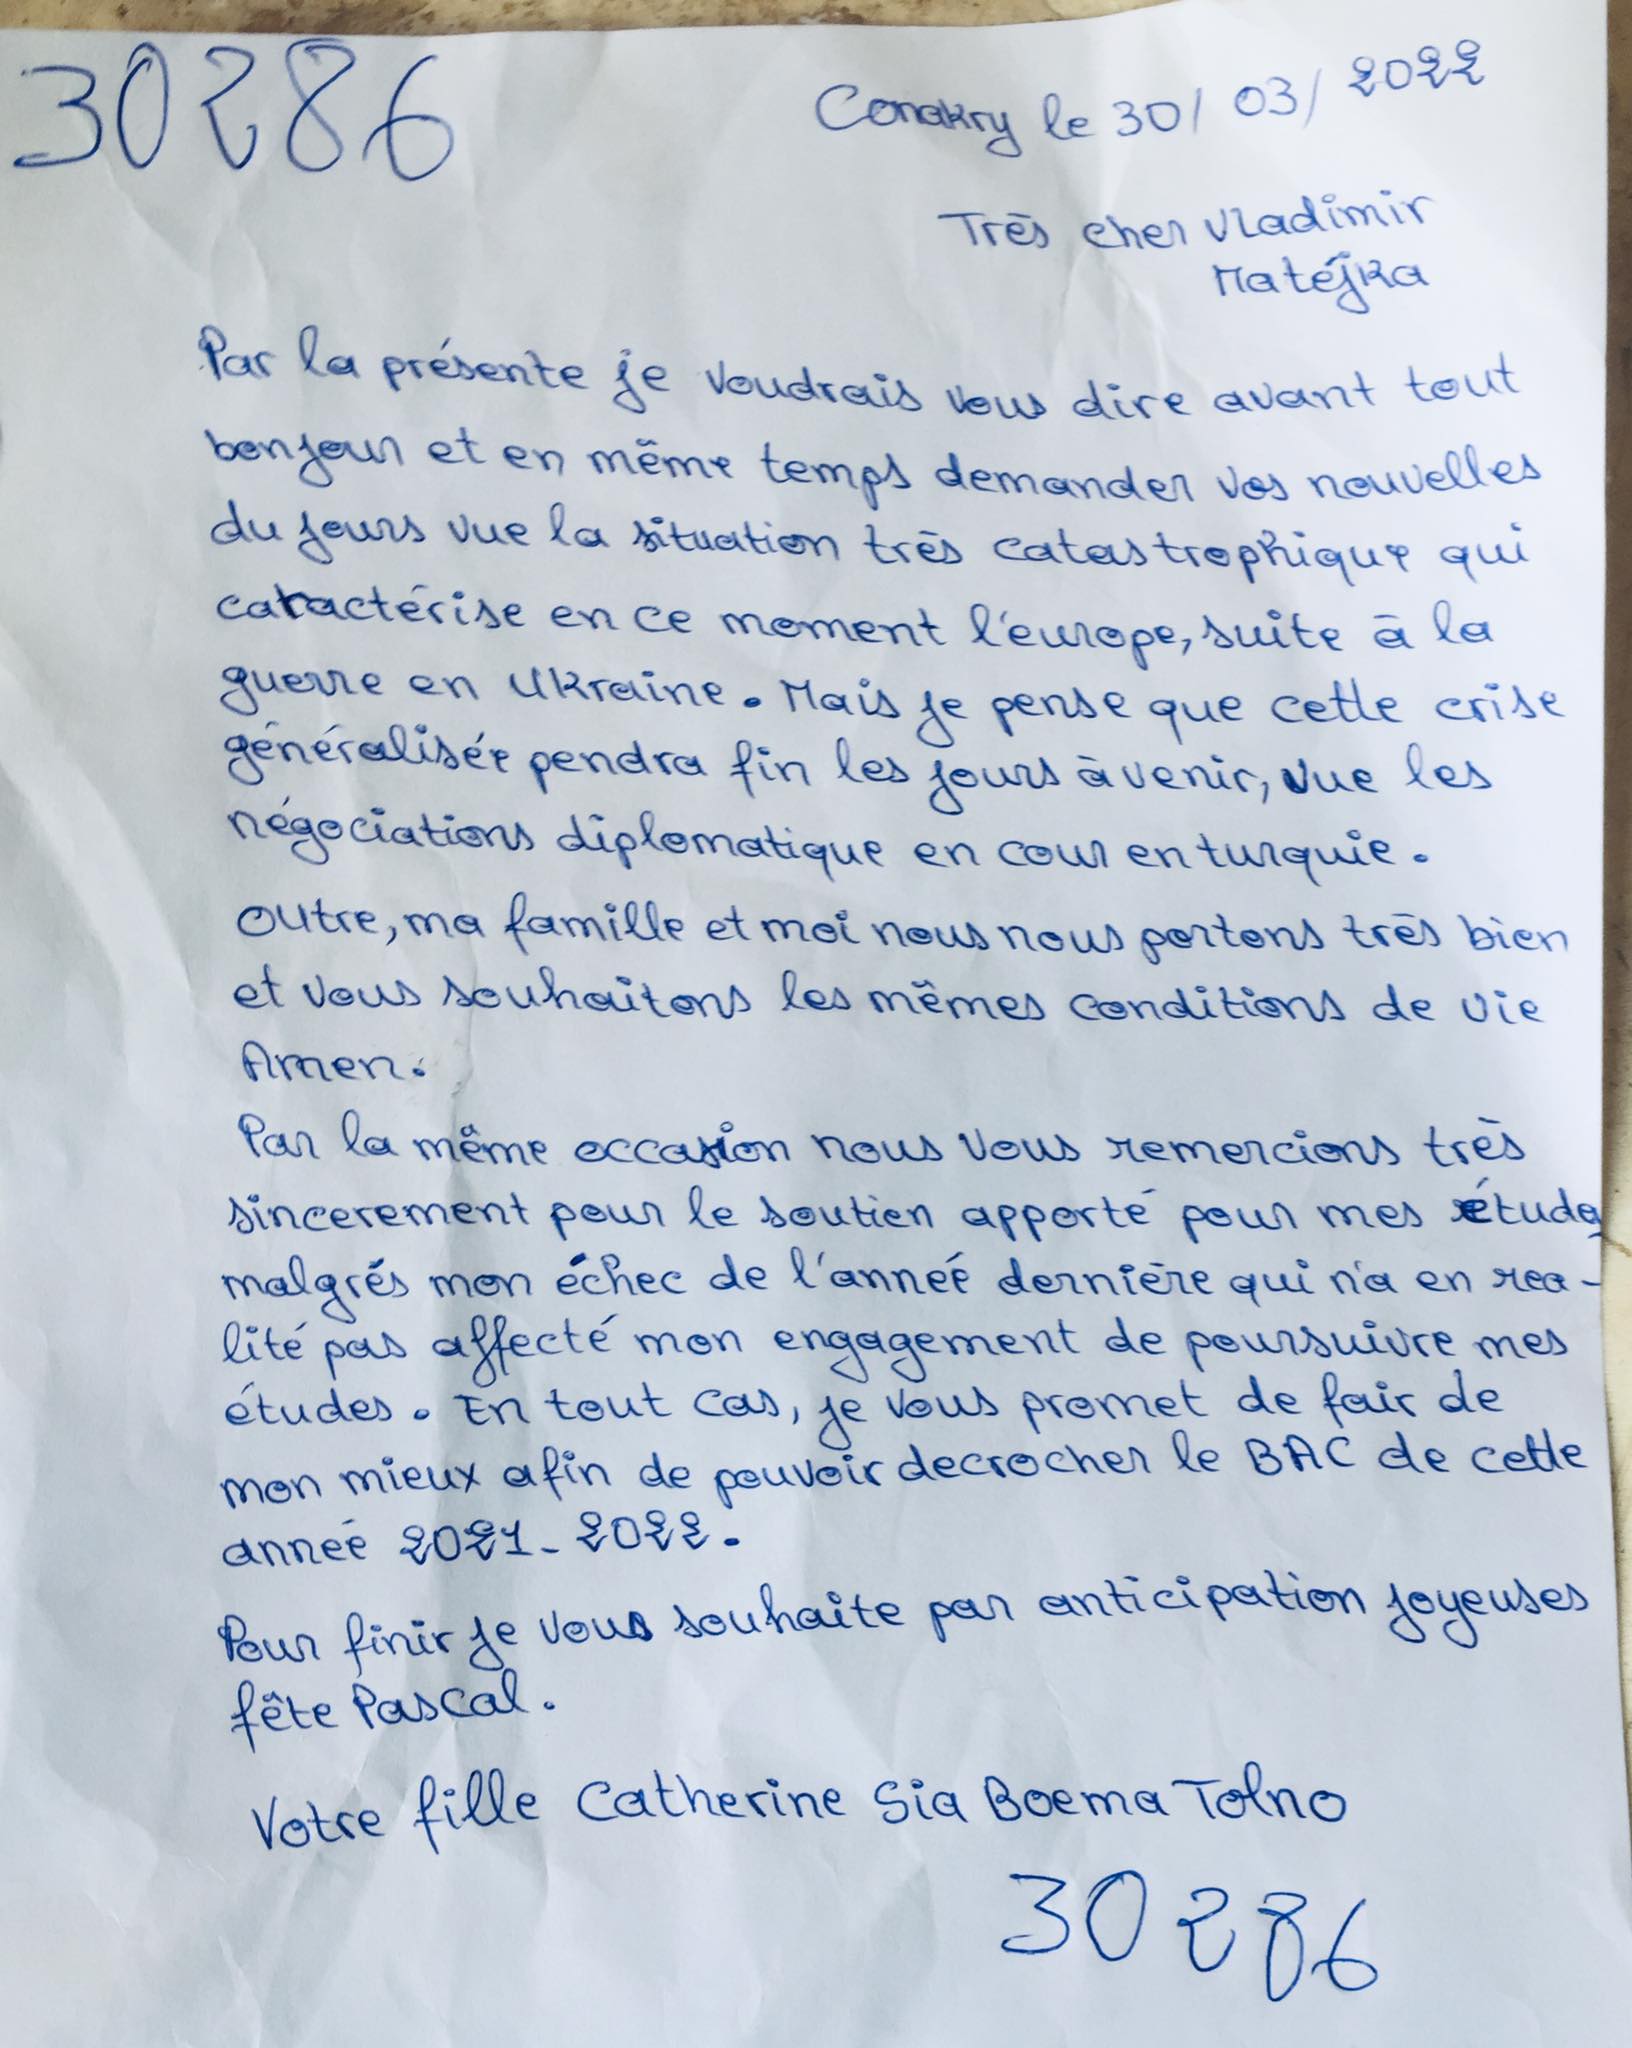 30286
Conakry le 30/03/2022
Très cher Vladimir
Matéjka
Par la présente je voudrais vous dire avant tout
bonjour et en même temps demander vos nouvelles
du jours vue la situation très catastrophique qui
caractérise en ce moment l'europe, suite à la
guerre en Ukraine. Mais je pense que cette crise
généralisée pendra fin les jours à venir, vue les
négociations diplomatique en cour en turquie.
Outre, ma famille et moi nous nous portons très bien
et vous souhaitons les mêmes conditions de vie
Amen.
Par la même occasion nous vous remercions très
sincerement pour le soutien apporté pour mes études
malgrés mon échec de l'anneé dernière qui n'a en rea-
lité pas affecté mon engagement de poursuivre mes
études. En tout cas, je vous promet de fair de
mon mieux afin de pouvoir decrocher le BAC de cette
anneé 2021-2022.
Pour finir je vous souhaite par anticipation joyeuses
fête Pascal.
Votre fille Catherine Sia Boema Tolno
30286